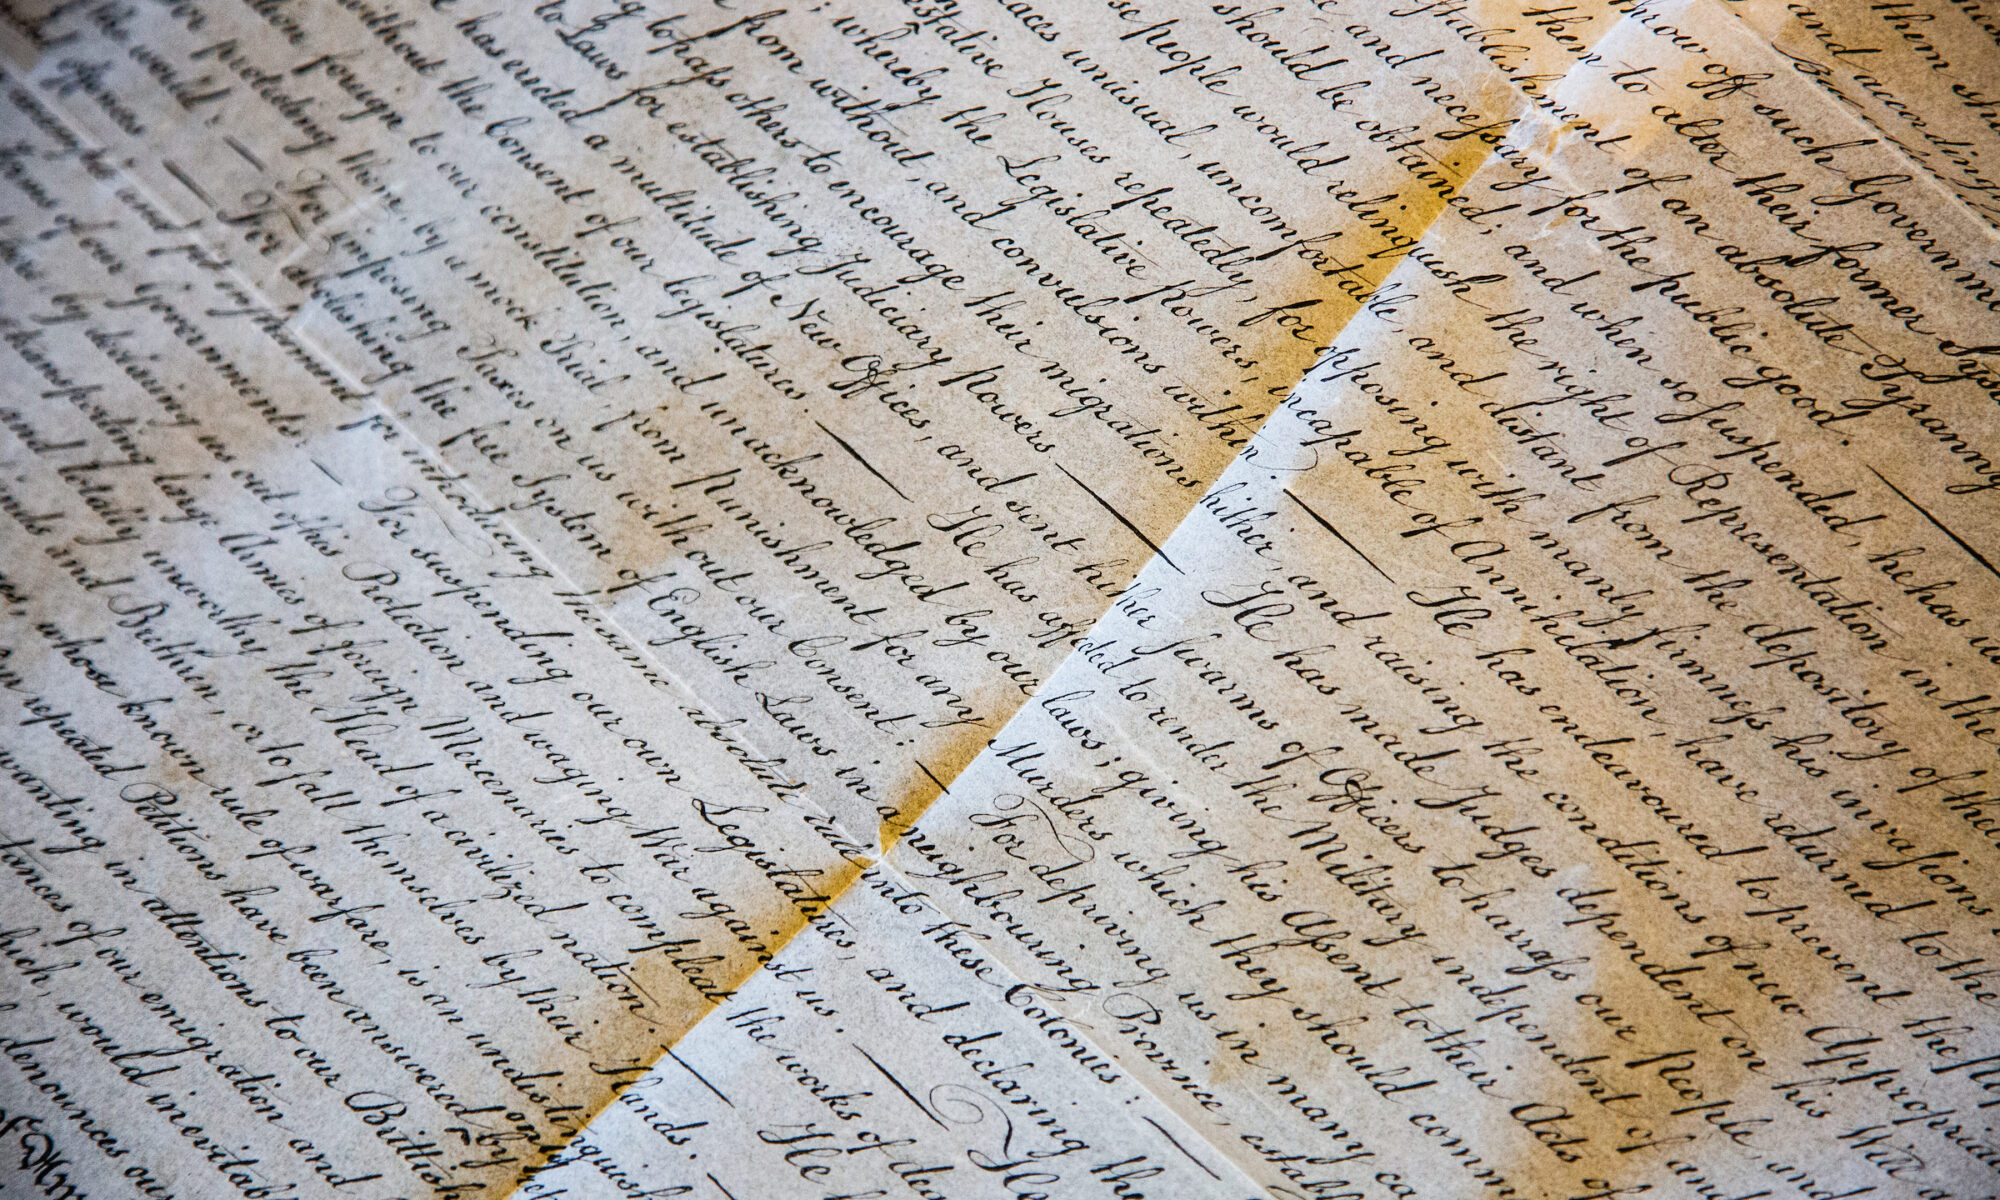 them sh
and according
throw off such Governmen
then to alter their former Syst
establishment of an absolute Tyranny
and necessary for the public good. —
should be obtained; and when so suspended, he has u
se people would relinquish the right of Representation in the
aces unusual, uncomfortable, and distant from the depository of thei
estative Houses repeatedly, for opposing with manly firmness his invasions
; whereby the Legislative powers, incapable of Annihilation, have returned to the
from without, and convulsions within. — He has endeavoured to prevent the
g to pass others to encourage their migrations hither, and raising the conditions of new Appropria
to Laws for establishing Judiciary powers — He has made Judges dependent on his Will
has erected a multitude of New Offices, and sent hither swarms of Officers to harrass our people, and
without the Consent of our legislatures. — He has affected to render the Military independent of and
tion foreign to our constitution, and unacknowledged by our laws; giving his Assent to their Acts of
protecting them, by a mock Trial, from punishment for any Murders which they should comm
the world: — For imposing Taxes on us without our Consent: — For depriving us in many ca
offences — For abolishing the free System of English Laws in a neighbouring Province, establ
for introducing the same absolute rule into these Colonies: —
Forms of our Governments: — For suspending our own Legislatures, and declaring the
by declaring us out of his Protection and waging War against us. — He
transporting large Armies of foreign Mercenaries to compleat the works of dea
and totally unworthy the Head of a civilized nation. — He
and Brethren, or to fall themselves by their Hands. —
whose known rule of warfare, is an undistinguish
repeated Petitions have been answered only by
wanting in attentions to our Brittish
tances of our emigration and
hich, would inevitab
denounces our